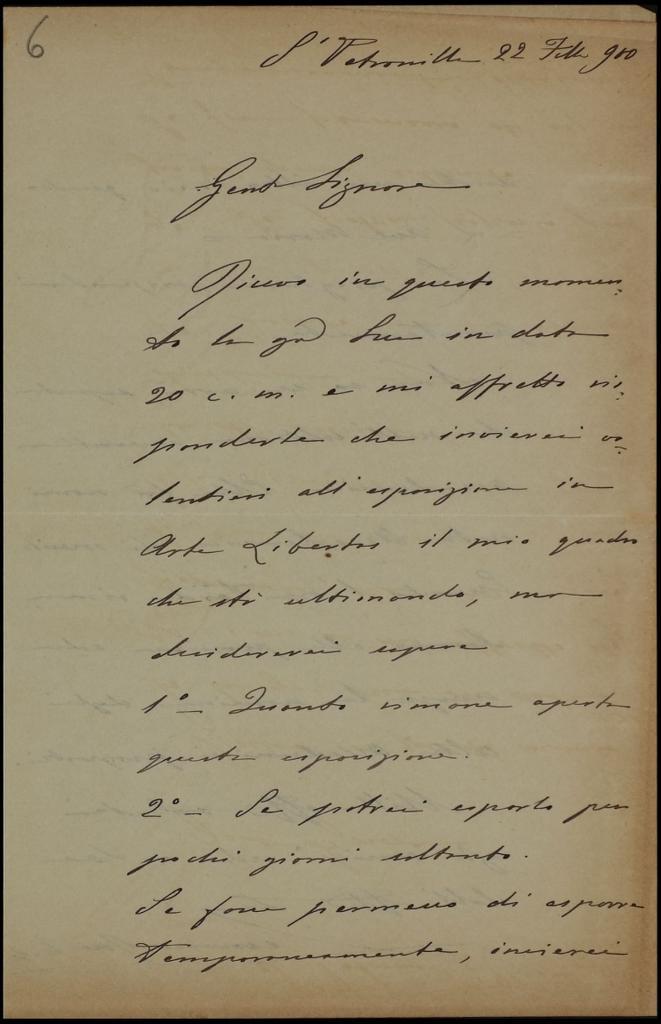 6
S' Petronilla 22 Febb 900
Gent Signore
Ricevo in questo momen-
to la gr Sua in data
20 c. m. e mi affretto ris-
ponderle che invierei vo-
lentieri all'esposizione in
Arte Libertas il mio quadro
che stò ultimando, ma
desidererei sapere
1º - Quanto rimane aperta
questa esposizione.
2º - Se potrei esporlo per
pochi giorni soltanto.
Se fosse permesso di esporre
temporaneamente, invierei